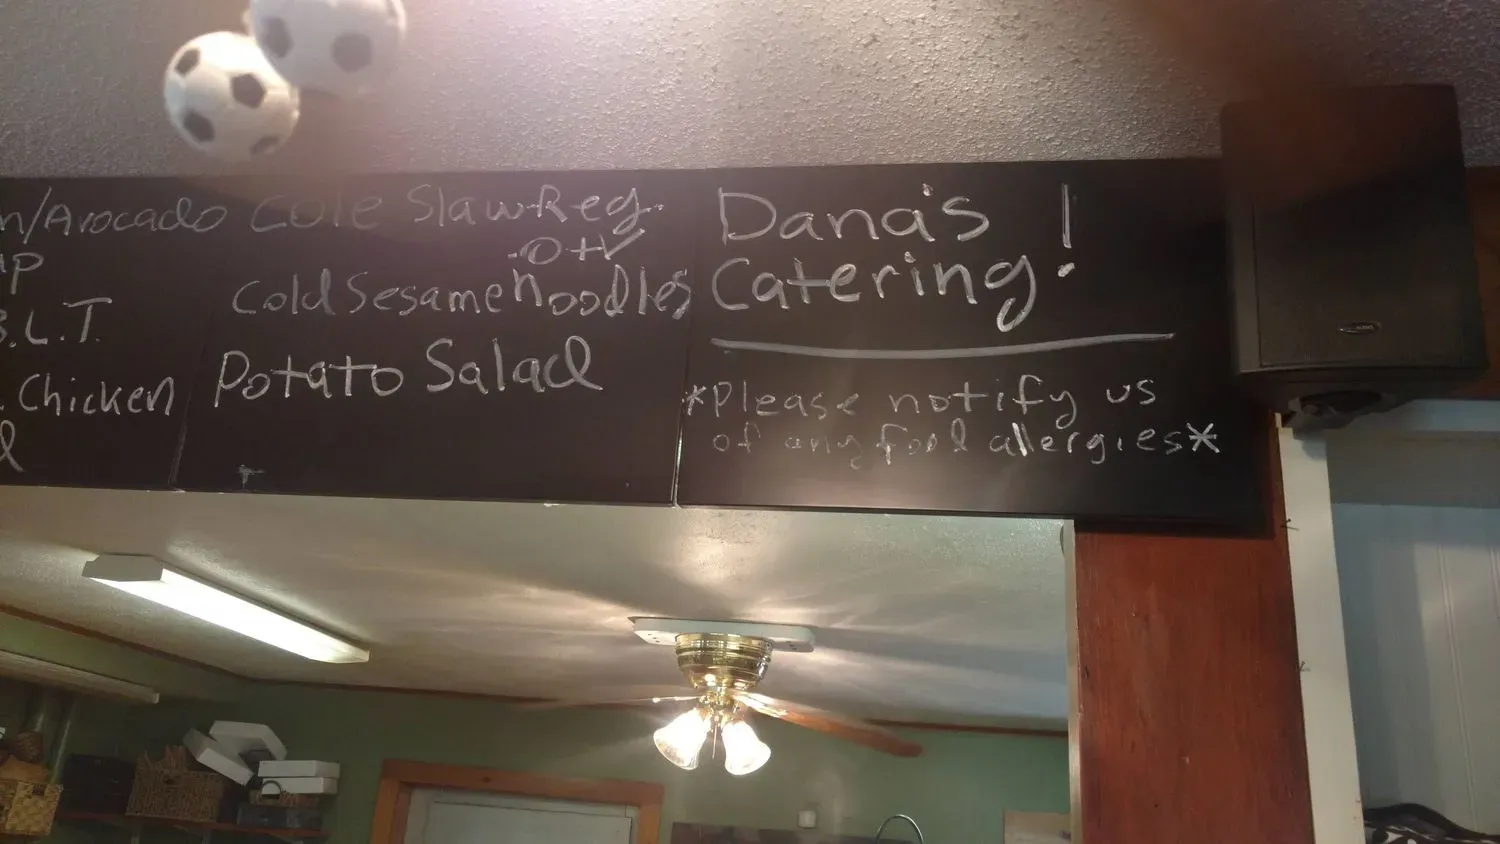 n/Avocado
up
B.L.T.
. Chicken
Cole Slaw-Reg.
-O+V
Cold Sesame noodles
Potato Salad
Dana's
Catering!
*Please notify us
of any food allergies*